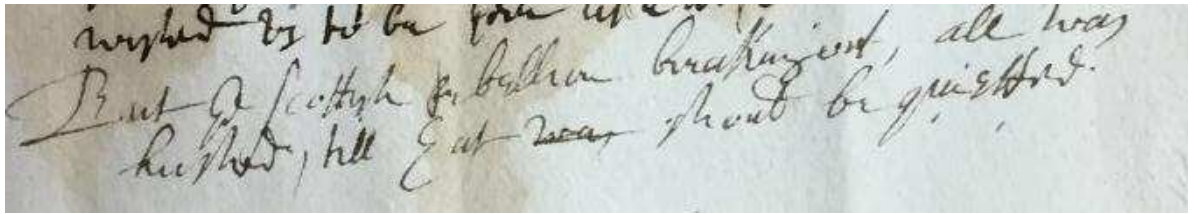 wished us to be
But ye Scottish Rebellion breaking out, all was
hushed, till yat was shoud be quietted.